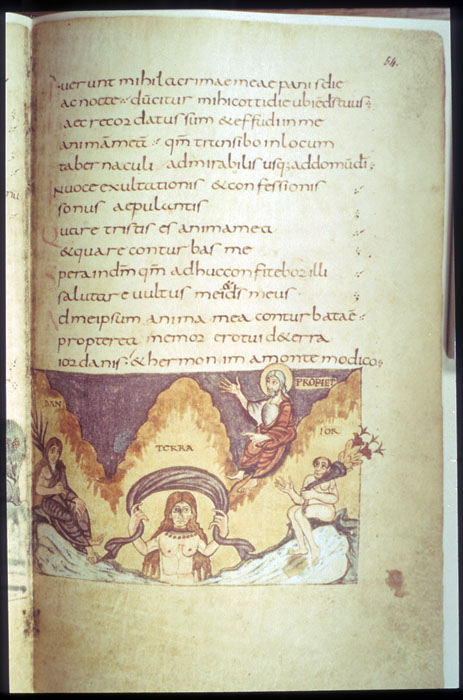 54.
Fuerunt mihi lacrimae meae panis die
ac nocte dū dicitur mihi cottidie ubi ē ds̄ tuus;
haec recordatus sum & effudi in me
animā meā qm̄ transibo in locum
tabernaculi admirabilis usq; ad domū dī
In uoce exultationis & confessionis
sonus aepulantis
Quare tristis es anima mea
& quare conturbas me
Spera in dm̄ qm̄ adhuc confitebor illi
salutare uultus mei & ds̄ meus
Ad me ipsum anima mea conturbata ē
propterea memor ero tui de terra
iordanis & hermoniim a monte modico;
PROPHET
DAN
IOR
TERRA